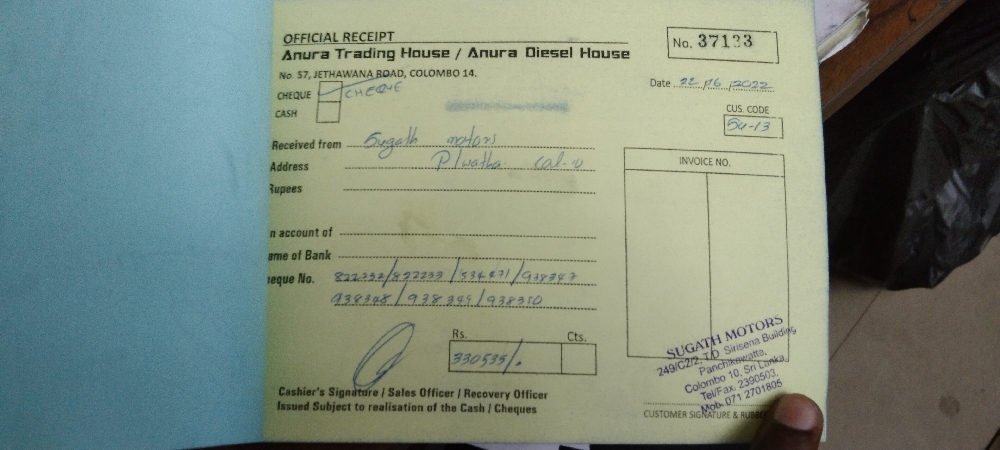 OFFICIAL RECEIPT
Anura Trading House / Anura Diesel House
No. 57, JETHAWANA ROAD, COLOMBO 14.
No. 37133
Date 22/16/2022
CHEQUE CHEQUE
CASH
CUS. CODE
Su-13
Received from Sugath motors
Address P/watha Col-10
Rupees
n account of
ame of Bank
eque No. 822232/822233/534471/938347
938348/938349/938350
INVOICE NO.
Rs. Cts.
330535/.
Cashier's Signature / Sales Officer / Recovery Officer
Issued Subject to realisation of the Cash / Cheques
SUGATH MOTORS
249/C2/2, T/D Sirisena Building
Panchikawatte,
Colombo 10, Sri Lanka.
Tel/Fax. 2390503,
Mob. 071 2701805
CUSTOMER SIGNATURE & RUBBE